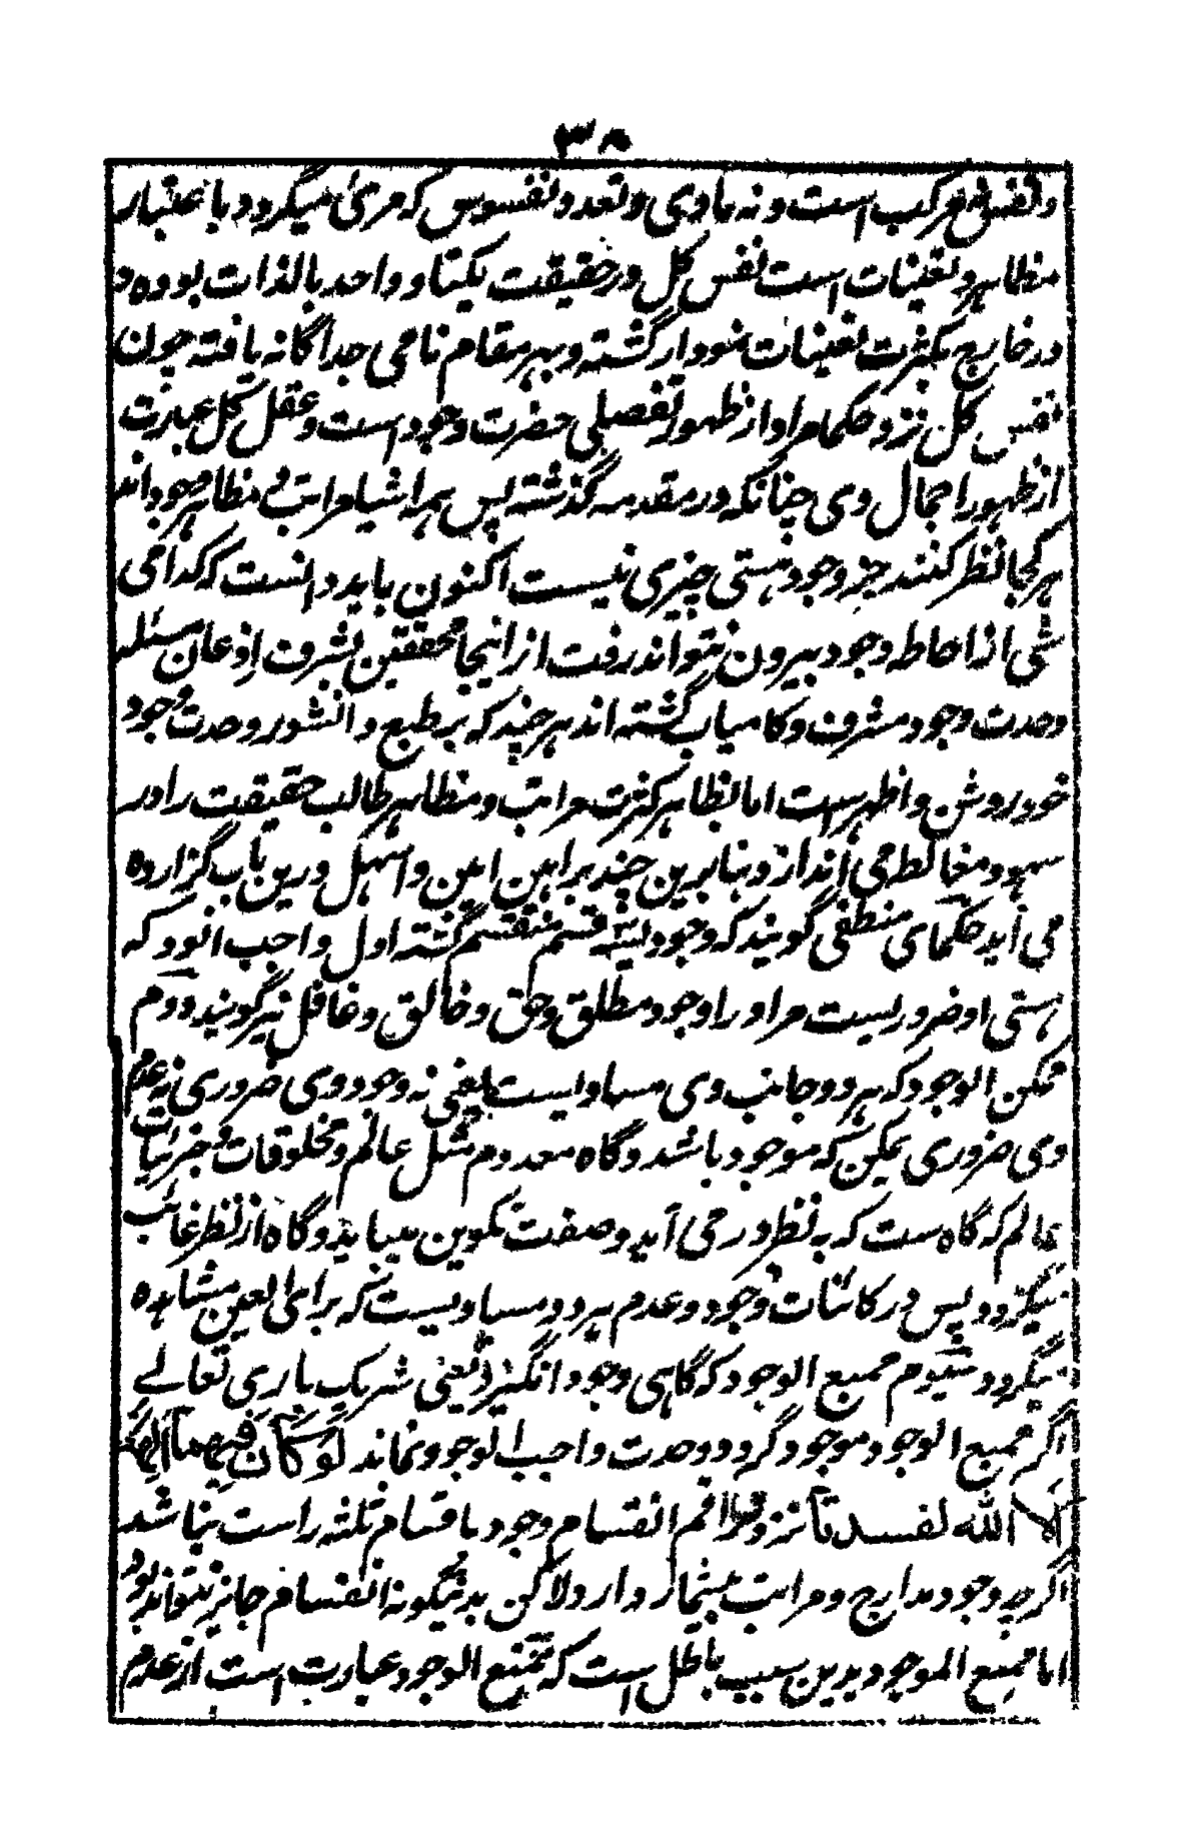 ۳۸
و نفس نه مرکب است و نه مادی و تعدد نفسوس که مرئی میگردد باعتبار
مظاهر و تعینات است نفس کل در حقیقت یکتا و واحد بالذات بوده و
در خارج بکثرت تعینات نمودار گشته و بهر مقام نامی جداگانه یافته چون
نفس کل نزد حکما مراد از ظهور تفصیلی حضرت وجود است و عقل کل عبارت
از ظهور اجمال وی چنانکه در مقدمه گذشته پس همه اشیا مراتب و مظاهر وجود اند
هر کجا نظر کنند جز وجود هستی چیزی نیست اکنون باید دانست که کدامی
شی از احاطه وجود بیرون نتواند رفت از اینجا محققین بشرف اذعان مسئله
وحدت وجود مشرف و کامیاب گشته اند هر چند که بر طبع دانشور وحدت وجود
خود روشن و اظهر است اما بظاهر کثرت مراتب و مظاهر طالب حقیقت را در
سهو و مغالطه می اندازد بنابرین چند براهین امین و اسهل درین باب گزارده
می آید حکمای منطقی گویند که وجود بسه قسم منقسم گشته اول واجب الوجود که
هستی او ضروریست مر او را وجود مطلق و حق و خالق و فاعل نیز گویند دوم
ممکن الوجود که هر دو جانب وی مساویست یعنی نه وجود وی ضروری نه عدم
وی ضروری ممکن که موجود باشد و گاه معدوم مثل عالم و مخلوقات و جزئیات
عالم که گاه ست که به نظر در می آید و صفت تکوین مییابد و گاه از نظر غائب
میگردد پس در کائنات وجود و عدم هر دو مساویست که برای العین مشاهده
میگردد سیوم ممتنع الوجود که گاهی وجود انگیزد یعنی شریک باری تعالے
اگر ممتنع الوجود موجود گردد وحدت واجب الوجود نماند لَوْ كَانَ فِيهِمَا آلِهَةٌ
إلا الله لفسدتا نزد راقم انقسام وجود باقسام ثلثه راست نباشد
اگرچه وجود مدارج و مراتب بیشمار دارد لاکن بدینگونه انقسام جائز نتواند بود
اما ممتنع الموجود بدین سبب باطل است که ممتنع الوجود عبارت است از عدم